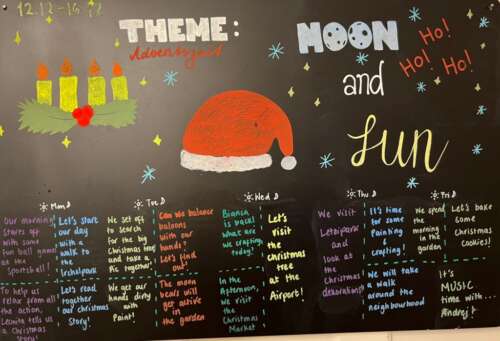 12.12-16.12
THEME:
Adventszeit
MOON
and
SUN
HO!
HO!
HO!
Mon
Tue
Wed
Thu
Fri
Our morning
starts off
with some
fun ball games
at the
Sportshall!
Let's start
our day
with a
walk to
the
Irchelpark
We set off
to search
for the big
Christmas tree
and take a
Pic together!
Can we balance
baloons
with our
hands?
Let's find
out!
Bianca
is back!
what are
we crafting
today?
Let's
visit
the
christmas
tree
at the
Airport!
We visit
Lettenpark
and
look at
the
Christmas
dekorations
It's time
for some
Painting
&
crafting!
We spend
the
morning
in the
garden
Let's bake
some
Christmas
Cookies!
To help us
relax from all
the action,
tells us
a Christmas
Story!
Let's read
together
our christmas
Story!
We get our
hands dirty
with
Paint!
The moon
bears will
get active
in
the garden
In the
afternoon,
we visit
the
Christmas
Market
We will take
a walk
around the
neighbourhood
It's
MUSIC
time with...
Andrej!